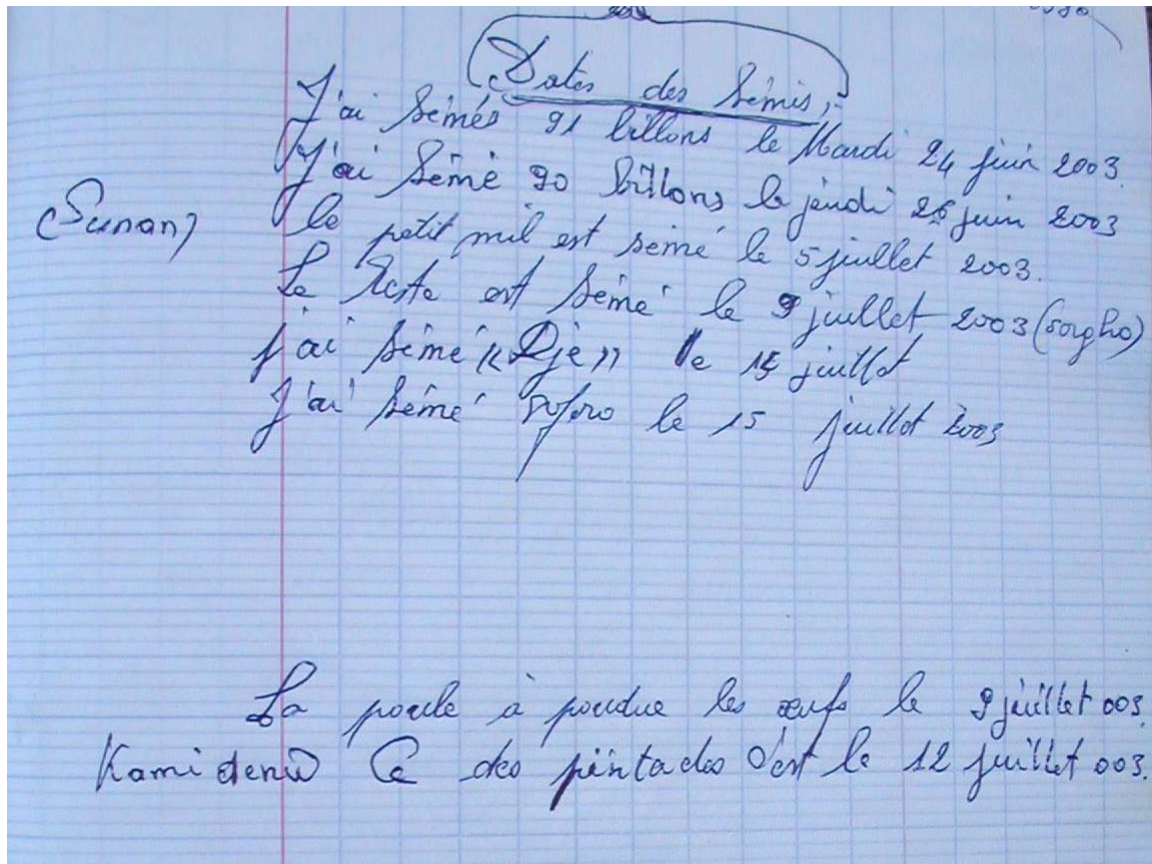 (Dates des Semis;-
J'ai semés 91 billons le Mardi 24 juin 2003.
J'ai semé 90 billons le jeudi 26 juin 2003
(Sunan) le petit mil est semé le 5 juillet 2003.
Le Reste est semé le 9 juillet 2003 (sorgho)
j'ai semé «Djè» le 15 juillet
J'ai semé le 15 juillet 2003
La poule à poudue les œufs le 9 juillet 003.
Kami Ce des pintades c'est le 12 juillet 003.